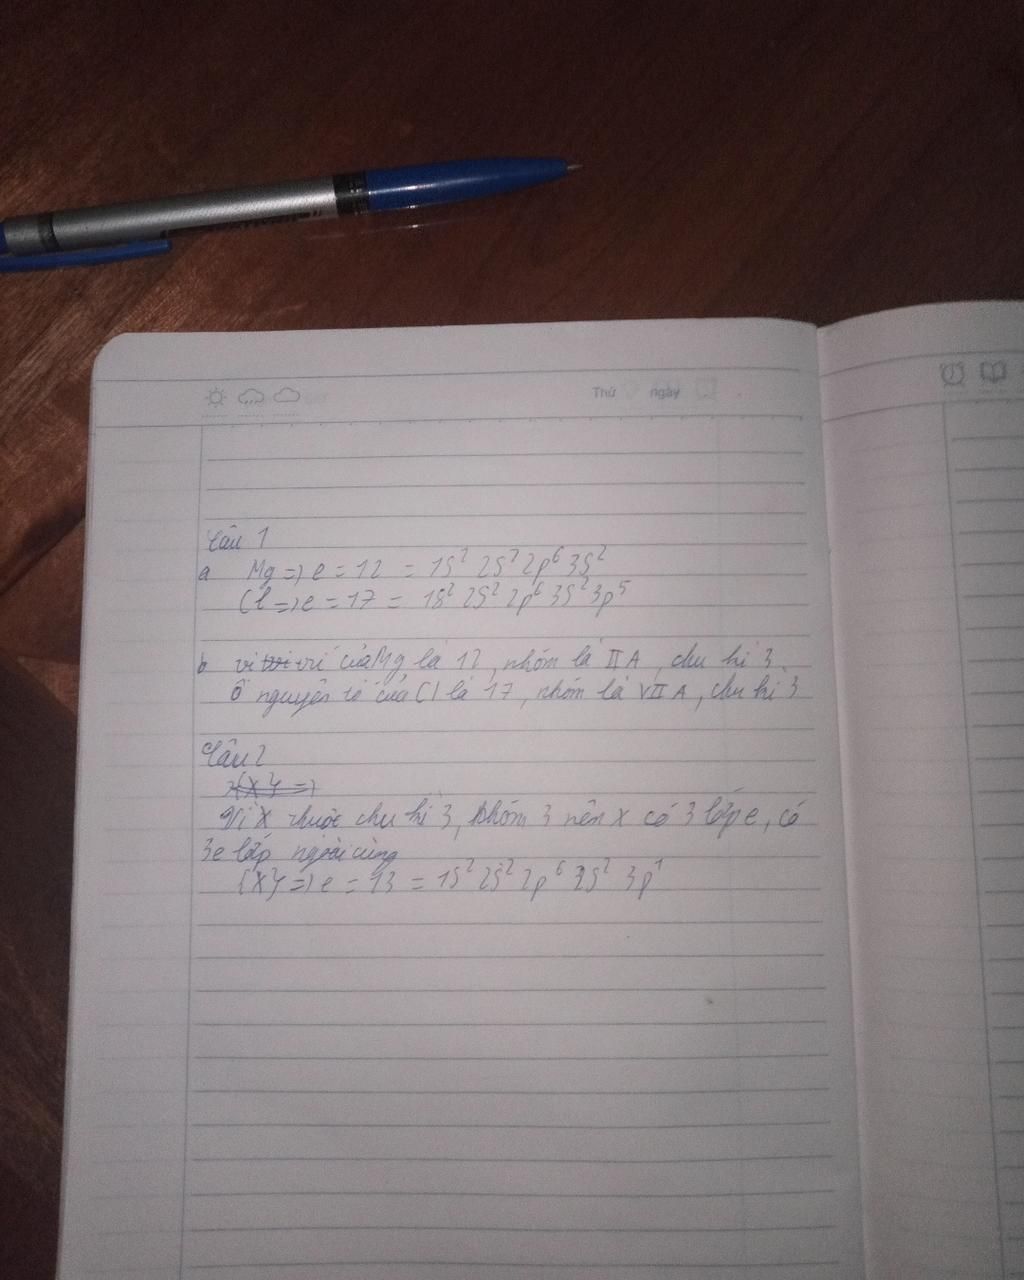 Thứ ngày
Câu 1
a Mg => e = 12 = 1s² 2s² 2p⁶ 3s²
Cl => e = 17 = 1s² 2s² 2p⁶ 3s² 3p⁵
b vị trí của Mg là 12, nhóm là IIA, chu kì 3
Ô nguyên tố của Cl là 17, nhóm là VIIA, chu kì 3
Câu 2
{X} =>
Vì X thuộc chu kì 3, nhóm 3 nên X có 3 lớp e, có
3e lớp ngoài cùng
{X} => e = 13 = 1s² 2s² 2p⁶ 3s² 3p¹